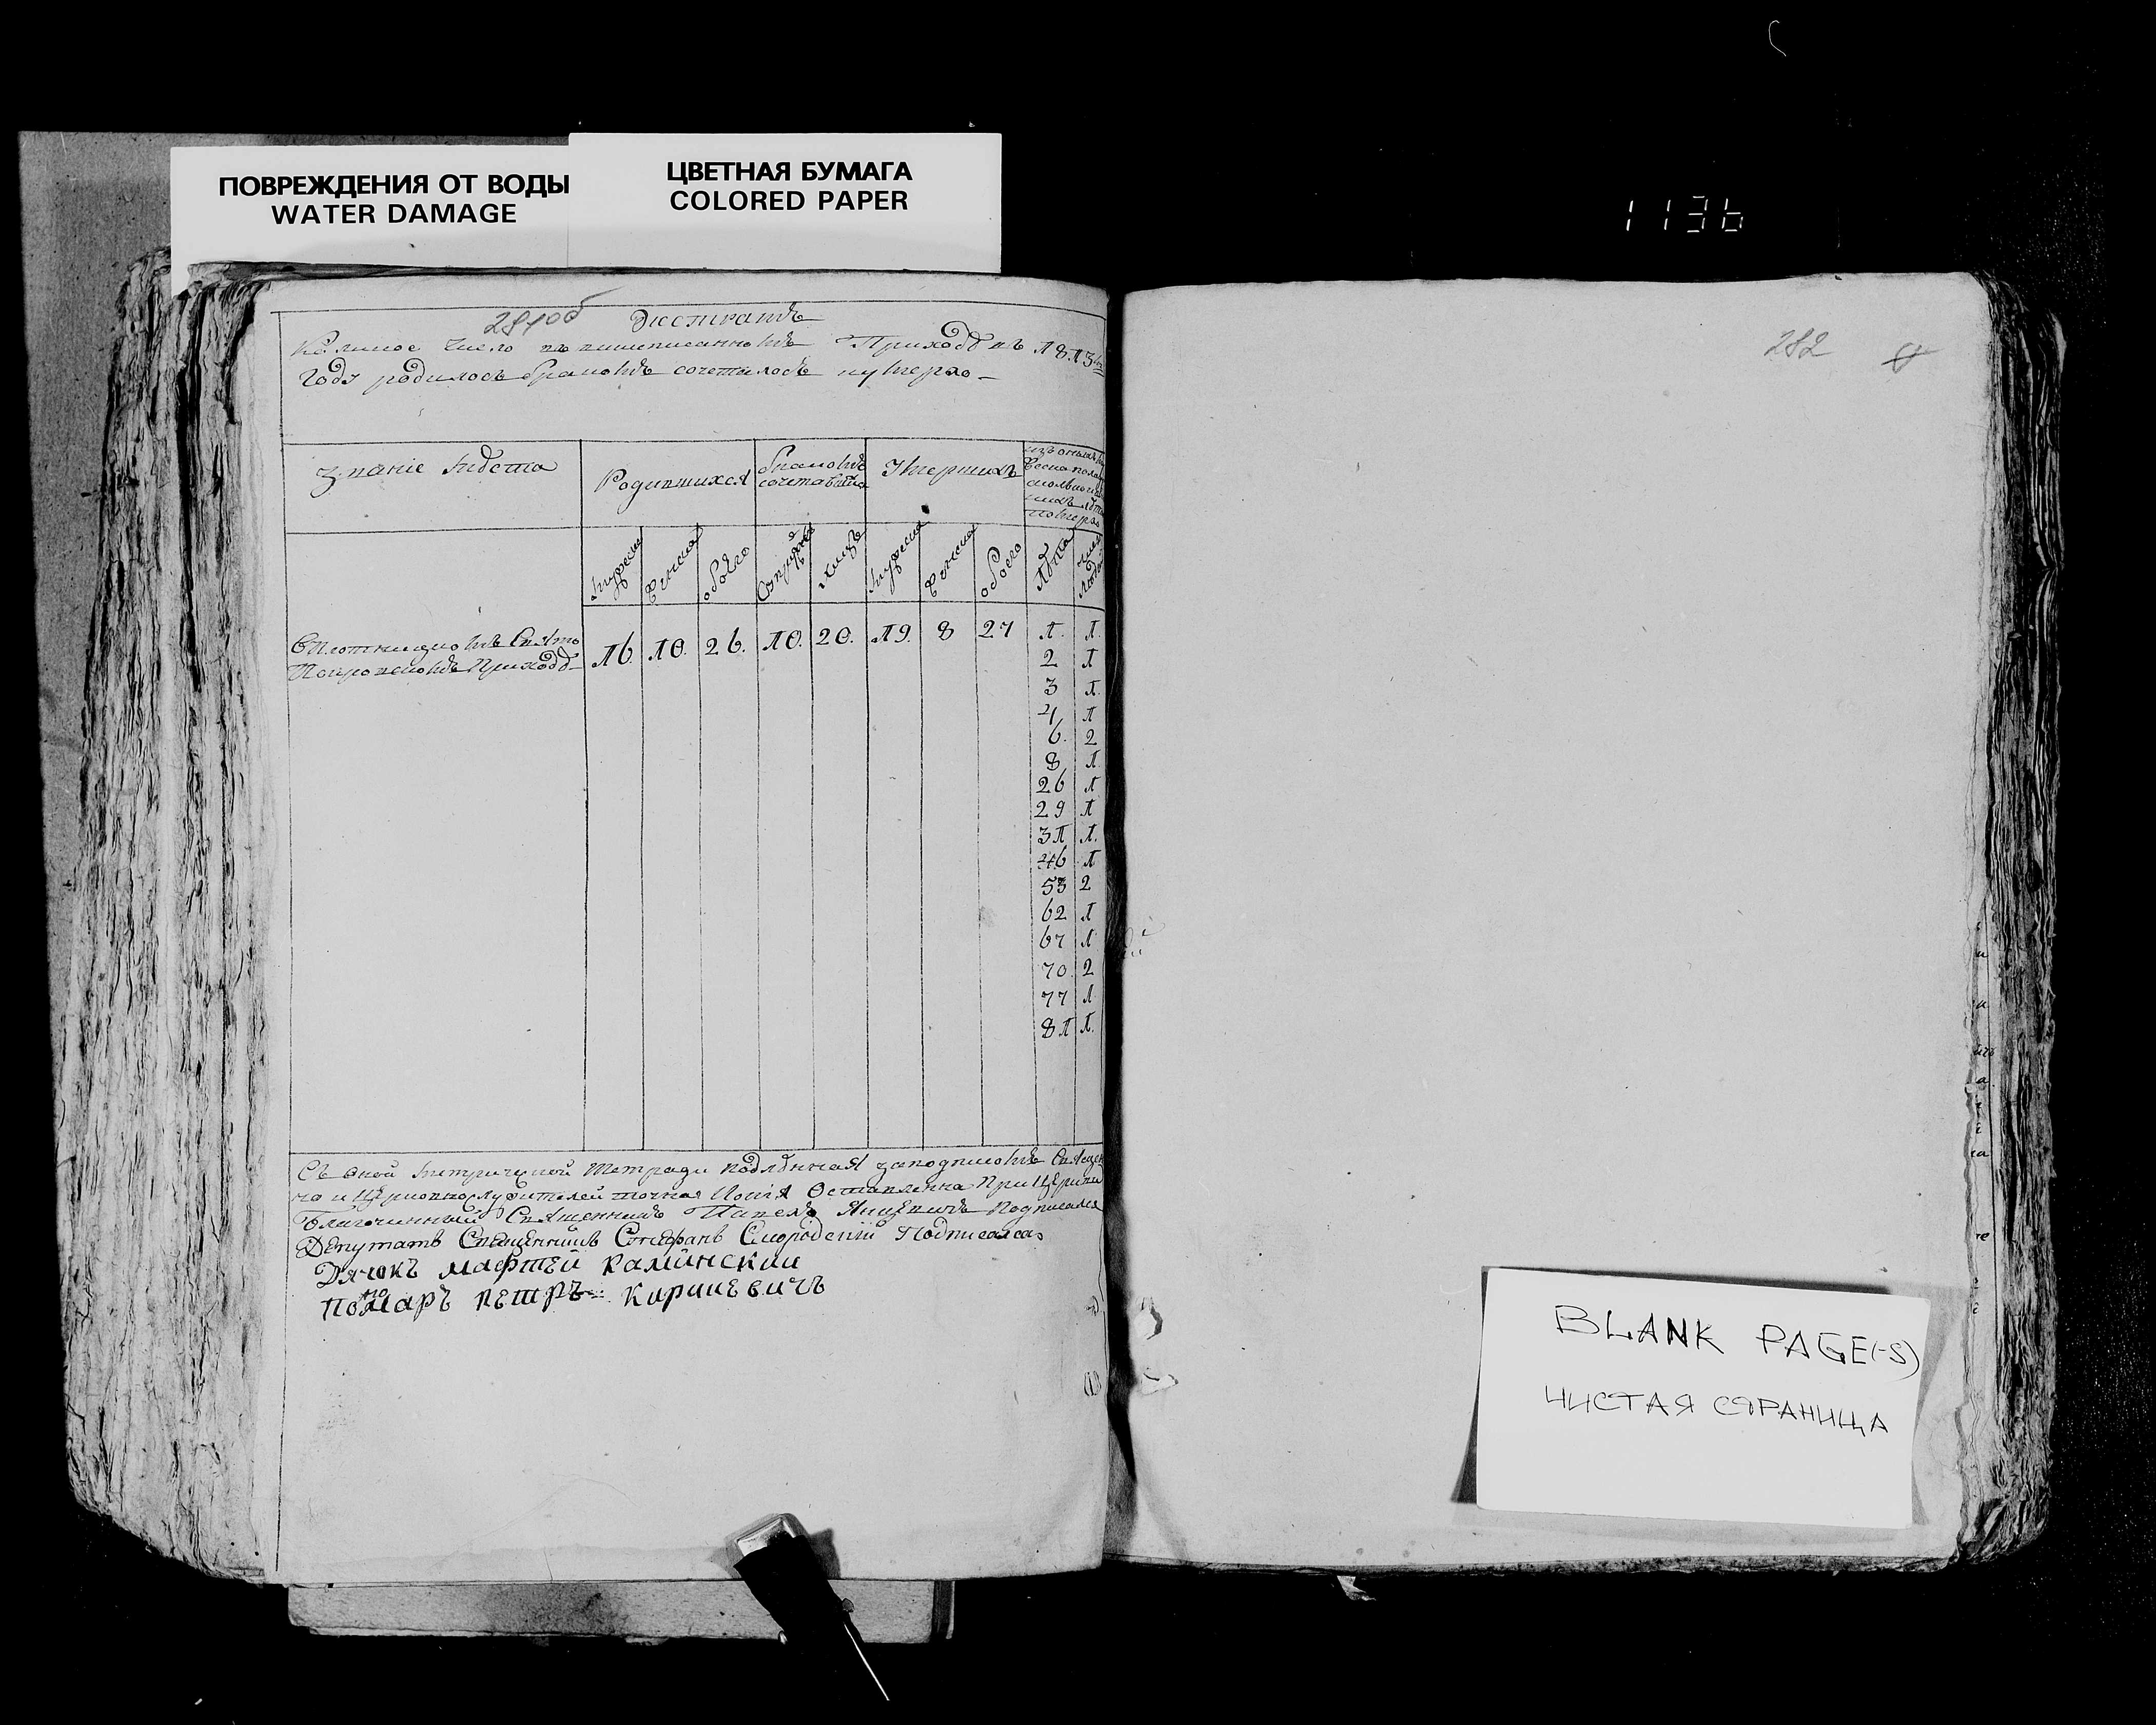 ПОВРЕЖДЕНИЯ ОТ ВОДЫ
WATER DAMAGE
ЦВЕТНАЯ БУМАГА
COLORED PAPER
1136
281об
Экстрактъ
Коликое число въ вышеписанномъ Приходѣ въ 1813м
Году родилось бракомъ сочеталось и умерло
Званіе мѣста
Родившихся
бракомъ
сочетавшихся
Умершихъ
Мужеска
Женска
обоего
лицъ
Мужеска
Женска
обоего
лѣта
Плотницкомъ Свято
Покровскомъ Приходѣ
16. 10. 26. 10. 20. 19. 8 27 1. 1.
2 1
3 1.
4 1
6. 2
8 1
26 1
29 1
31 1.
46 1
53 2
62 1
67 1
70 2
77 1
81 1.
Съ оной метрической тетради подлѣнная заподписомъ Священ
но и Церковнослужителей точная копія Оставленна При Церкви
Благочинный Священникъ Павелъ Подписался
Депутатъ Священникъ Стефанъ Подписался
Дячокъ мафтей каминскии
Пономаръ петръ кириевичъ
282
BLANK PAGE(-S)
ЧИСТАЯ СТРАНИЦА